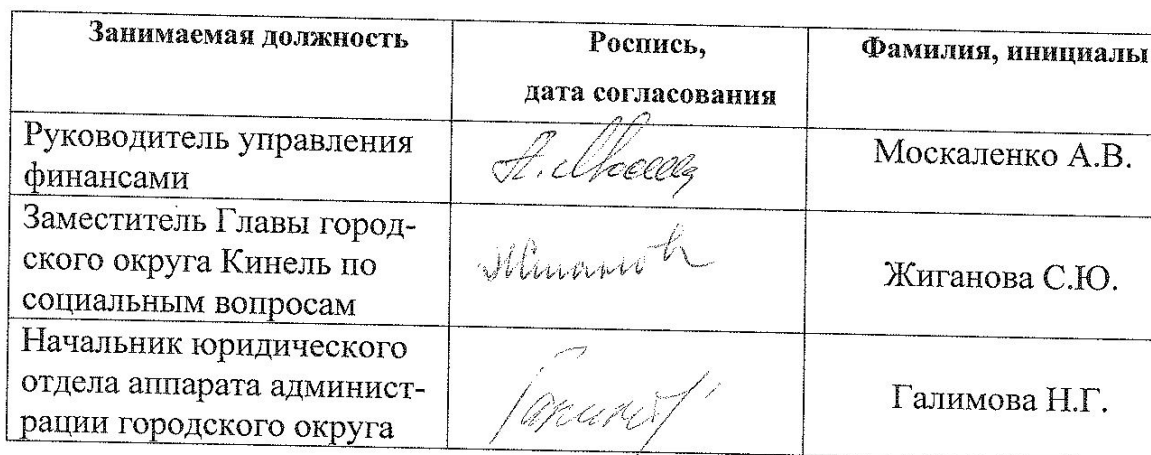 Занимаемая должность
Роспись,
дата согласования
Фамилия, инициалы
Руководитель управления
финансами
Москаленко А.В.
Заместитель Главы город-
ского округа Кинель по
социальным вопросам
Жиганова С.Ю.
Начальник юридического
отдела аппарата админист-
рации городского округа
Галимова Н.Г.